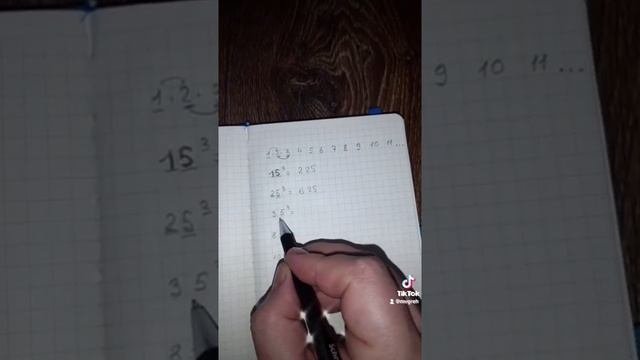 1 · 2 · 3 4 5 6 7 8 9 10 11 ...
15² = 225
25² = 625
35² =
TikTok